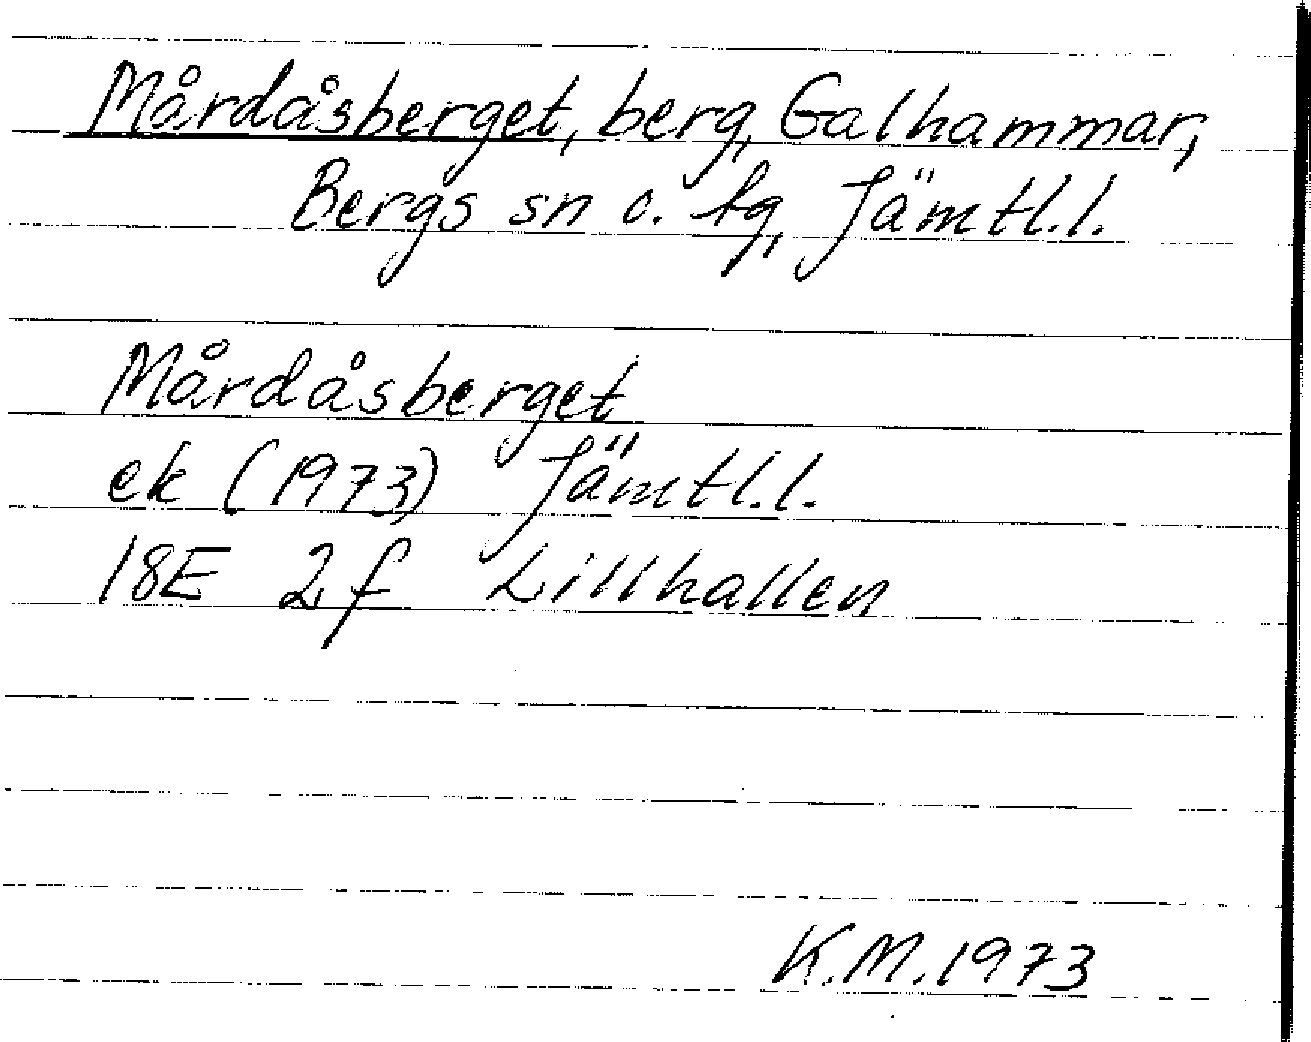 Mårdåsberget, berg, Galhammar,
Bergs sn o. tg, Jämtl.l.
Mårdåsberget
ek (1973) Jämtl.l.
18E 2f Lillhallen
K.M.1973